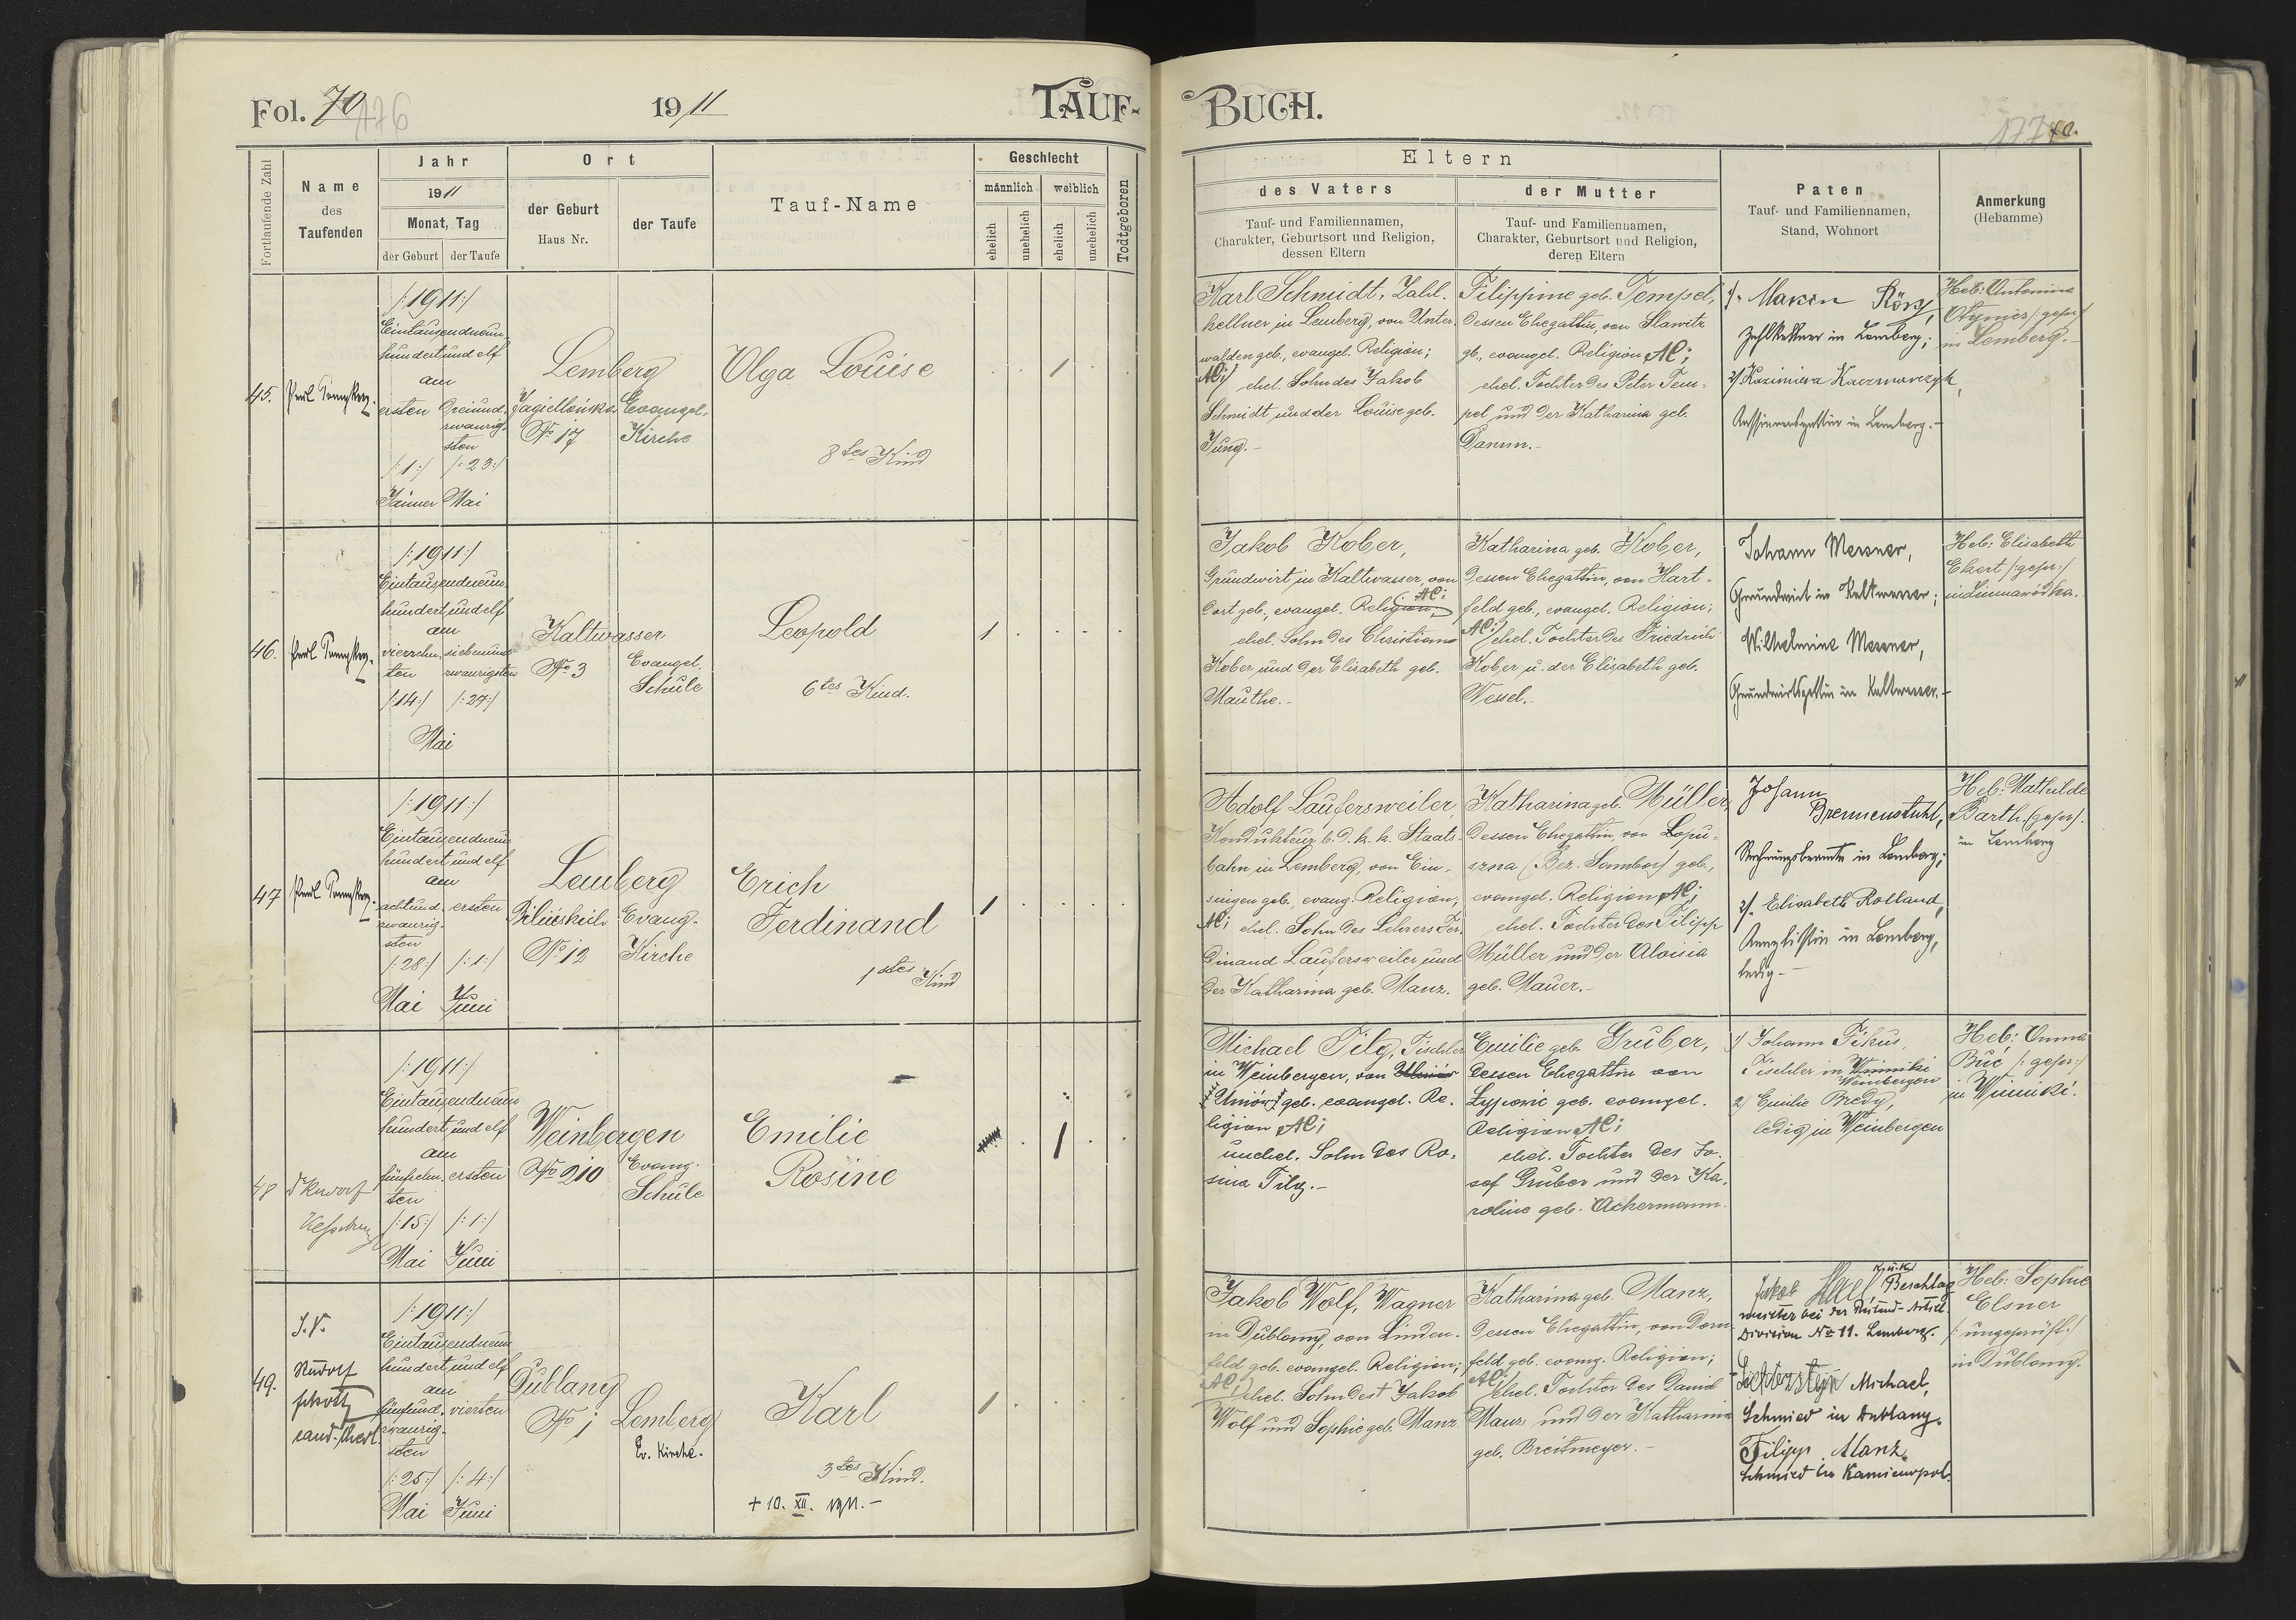 Fol. 70
176
1911
TAUF-
Fortlaufende Zahl
Name
des
Taufenden
Jahr
1911
Monat, Tag
der Geburt
der Taufe
Ort
der Geburt
Haus Nr.
der Taufe
Tauf-Name
Geschlecht
männlich
weiblich
ehelich
unehelich
ehelich
unehelich
Todtgeboren
45.
/:1911:/
Eintausendneun
hundert und elf
am
ersten
Dreiund
zwanzig
sten
/:1:/ /:23:/
Jänner Mai
Lemberg
Jagiellońska
No 17
Evangel.
Kirche
Olga Louise
8tes Kind
1
46.
/:1911:/
Eintausendneun
hundert und elf
am
vierzehn
ten
siebenund
zwanzigsten
/:14:/ /:27:/
Mai
Kaltwasser
No 3
Evangel.
Schule
Leopold
6tes Kind.
1
47
/:1911:/
Eintausendneun
hundert und elf
am
achtund
zwanzig-
sten
ersten
/:28:/ /:1:/
Mai Juni
Lemberg
No 12
Evang.
Kirche
Erich
Ferdinand
1stes Kind
1
48
/:1911:/
Eintausendneun
hundert und elf
am
fünfzehn
ten
ersten
/:15:/ /:1:/
Mai Juni
Weinbergen
No 210
Evang.
Schule
Emilie
Rosine
1
49.
I.V.
Rudolf
cand. theol.
/:1911:/
Eintausendneun
hundert und elf
am
fünfund
zwanzig-
sten
vierten
/:25:/ /:4:/
Mai Juni
Dublany
No 1
Lemberg
Ev. Kirche.
Karl
3tes Kind.
+ 10. XII. 1911.-
1
BUCH.
177
70.
Eltern
des Vaters
Tauf- und Familiennamen,
Charakter, Geburtsort und Religion,
dessen Eltern
der Mutter
Tauf- und Familiennamen,
Charakter, Geburtsort und Religion,
deren Eltern
Paten
Tauf- und Familiennamen,
Stand, Wohnort
Anmerkung
(Hebamme)
Karl Schmidt, Zahl-
kellner in Lemberg, von Unter-
walden geb., evangel. Religion;
AC;/ ehel. Sohn des Jakob
Schmidt und der Louise geb.
Jung.-
Filippine geb. Tempel,
dessen Ehegattin, von Slawitz
gb., evangel. Religion AC;
ehel. Tochter des Peter Tem-
pel und der Katharina geb.
Damm.-
Zahlkellner in Lemberg;
2/ Kazimiera Kaczmarczyk,
in Lemberg.-
Heb: Antonina
/:gepr:/
in Lemberg.-
Jakob Kober,
Grundwirt in Kaltwasser, von
dort geb., evangel. Religion, AC;
ehel. Sohn des Christian
Kober und der Elisabeth geb.
Mauthe.-
Katharina geb. Kober,
dessen Ehegattin, von Hart-
feld geb., evangel. Religion;
AC;/ ehel. Tochter des Friedrich
Kober u. der Elisabeth geb.
Wessel.-
Johann Messner,
Grundwirt in Kaltwasser;
Wilhelmine Messner,
Grundwirtsgattin in Kaltwasser.-
Heb: Elisabeth
Ekert /:gepr:/
in Zimnawódka.
Adolf Laufersweiler,
Kondukteur b. d. k. k. Staats-
bahn in Lemberg, von Ein-
singen geb., evang. Religion;
AC; ehel. Sohn des Lehrers Fer-
dinand Laufersweiler und
der Katharina geb. Manz.
Katharina geb. Müller,
dessen Ehegattin, von Łopu-
szna (Bez. Sambor) geb.,
evangel. Religion AC;
ehel. Tochter des Filipp
Müller und der Aloisia
geb. Mauer.-
Johann
Brennenstuhl,
Rechnungsbeamte in Lemberg;
2/. Elisabeth Rolland,
Kanzlistin in Lemberg,
ledig.-
Heb: Mathilde
Barth. (gepr).
in Lemberg
Michael Tilg, Tischler
in Weinbergen, von
Uniów geb. evangel. Re-
ligion AC;
unehel. Sohn des Ro-
sina Tilg.-
Emilie geb. Gruber,
dessen Ehegattin von
Łypowic geb. evangel.
Religion AC;
ehel. Tochter des Jo-
sef Gruber und der Ka-
roline geb. Ackermann.
1/ Johann Fikus,
Tischler in Winniki
Weinbergen
2/ Emilie Bredy,
ledig in Weinbergen
Heb: Anna
Buć /:gepr:/
in Winniki.
Jakob Wolf, Wagner
in Dublany, von Linden-
feld geb. evangel. Religion;
AC;/ ehel. Sohn des † Jakob
Wolf und Sophie geb. Manz.
Katharina geb. Manz,
dessen Ehegattin, von Dorn-
feld geb. evang. Religion;
AC;/ ehel. Tochter des Daniel
Manz und der Katharina
geb. Breitmeyer.-
Jakob k. u. k. Beschlag
meister bei der Reitend-Artill.
Division No 11. Lemberg.
Michael,
Schmied in Dublany.
Filipp Manz
Schmied in Kamienopol.
Heb: Sophie
Elsner
/:ungeprüft:/
in Dublany.